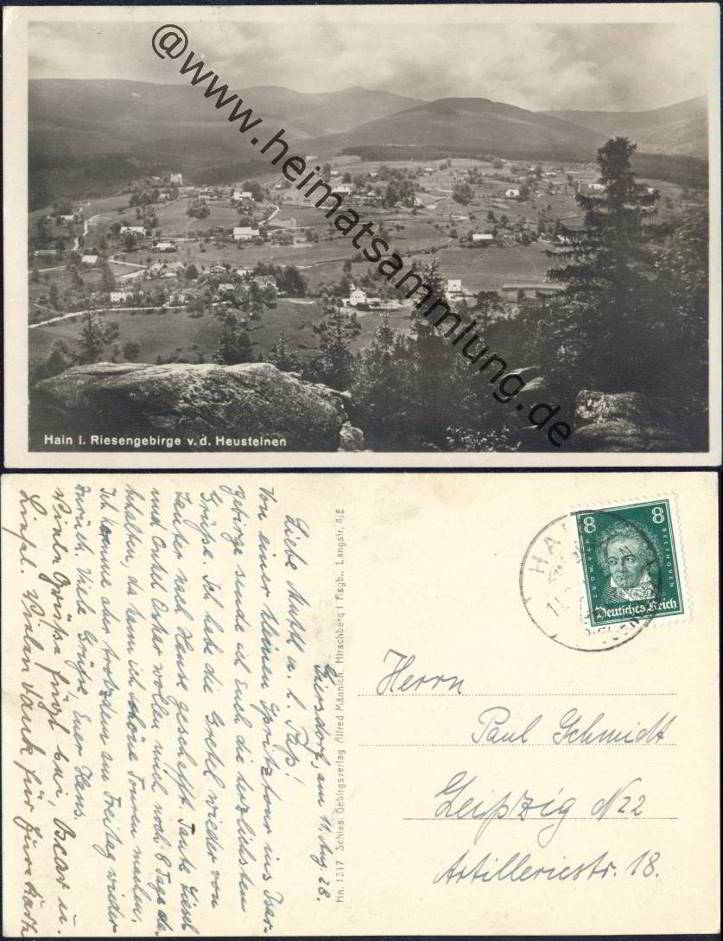 @www.heimatsammlung.de
Hain i. Riesengebirge v. d. Heusteinen
8 8
LUDW. VAN BEETHOVEN
Deutsches Reich
HAI
Herrn
Paul Schmidt
Leipzig N 22
Artilleriestr. 18.
Hn. 1317 Schles. Gebirgsverlag Alfred Männich, Hirschberg i Rsgb., Langstr. 4/E
Giersdorf, am 11. Aug. 28.
Liebe Mutti u. l. Pap!
Von einer kleinen Spritztour ins Iser-
gebirge sende ich Euch die herzlichsten
Grüße. Ich habe die Gretel wieder von
Lauban nach Hause geschafft. Tante Liesel
und Onkel Oskar wollen mich noch 8 Tage da-
behalten, da kann ich schöne Touren machen,
Ich komme aber trotzdem am Freitag wieder
zurück. Viele Grüße Euer Hans.
Viele Grüße fügt bei, Oscar u.
Liesel. Vielen Dank für Eure Karte